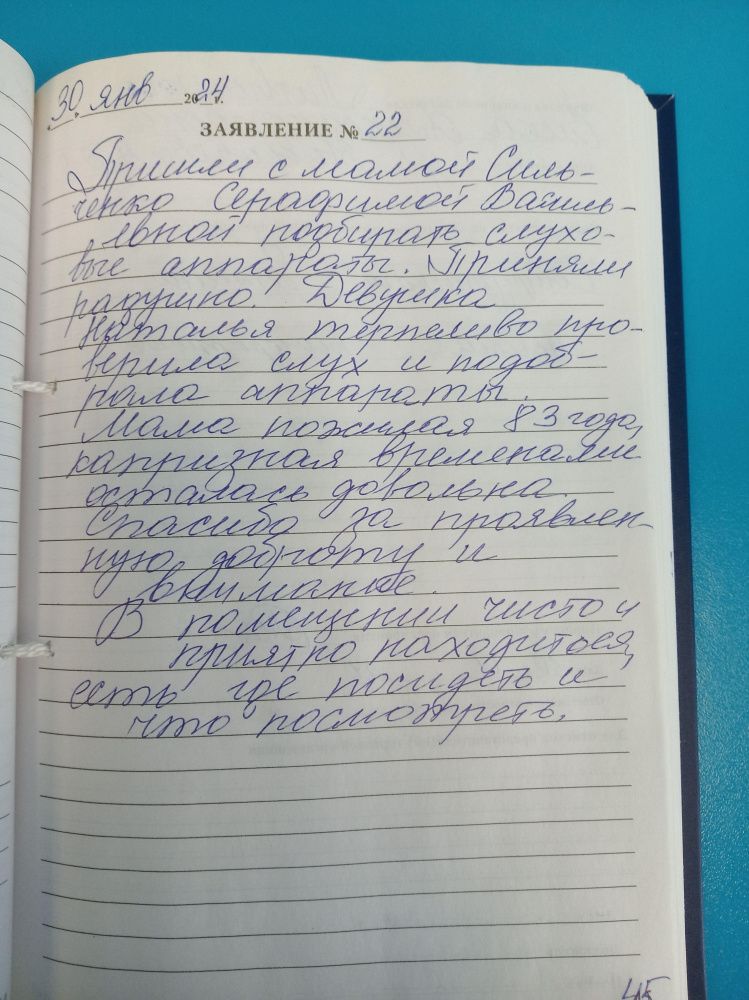 30 янв 2024 г.
ЗАЯВЛЕНИЕ № 22
Пришли с мамой Силь-
ченко Серафимой Василь-
евной подбирать слухо-
вые аппараты. Приняли
радушно. Девушка
Наталья терпеливо про-
верила слух и подоб-
рала аппараты.
Мама пожилая 83 года,
капризная временами
осталась довольна.
Спасибо за проявлен-
ную доброту и
внимание.
В помещении чисто и
приятно находиться,
есть где посидеть и
что посмотреть.
45